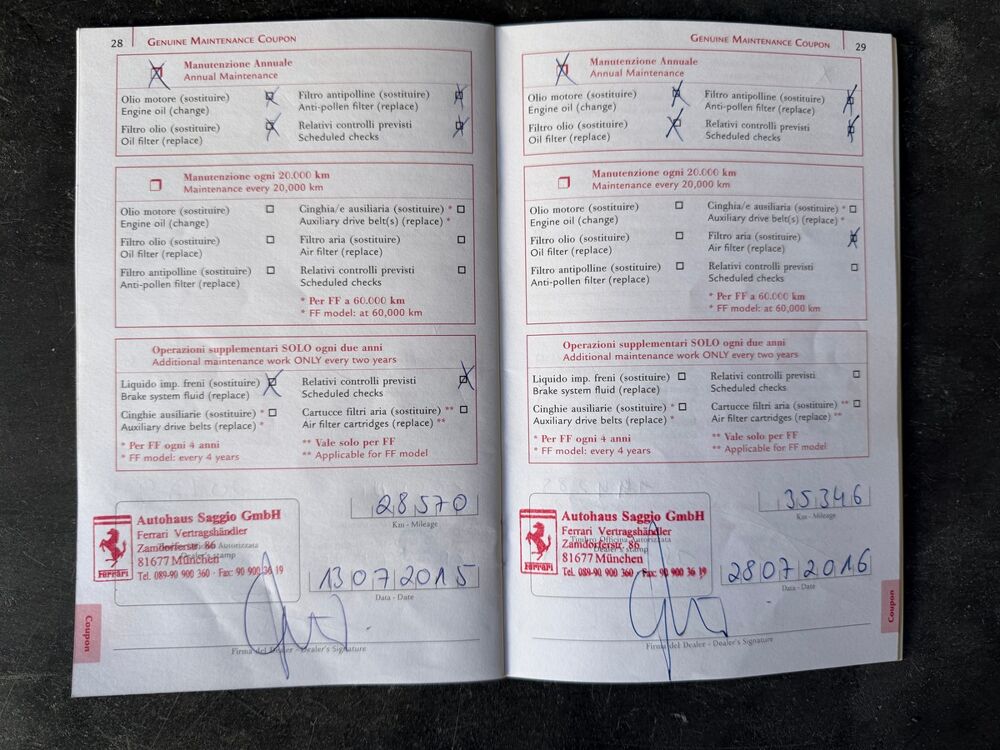 28 GENUINE MAINTENANCE COUPON
Manutenzione Annuale
Annual Maintenance
Olio motore (sostituire)
Engine oil (change)
Filtro antipolline (sostituire)
Anti-pollen filter (replace)
Filtro olio (sostituire)
Oil filter (replace)
Relativi controlli previsti
Scheduled checks
Manutenzione ogni 20.000 km
Maintenance every 20,000 km
Olio motore (sostituire)
Engine oil (change)
Cinghia/e ausiliaria (sostituire) *
Auxiliary drive belt(s) (replace) *
Filtro olio (sostituire)
Oil filter (replace)
Filtro aria (sostituire)
Air filter (replace)
Filtro antipolline (sostituire)
Anti-pollen filter (replace)
Relativi controlli previsti
Scheduled checks
* Per FF a 60.000 km
* FF model: at 60,000 km
Operazioni supplementari SOLO ogni due anni
Additional maintenance work ONLY every two years
Liquido imp. freni (sostituire)
Brake system fluid (replace)
Relativi controlli previsti
Scheduled checks
Cinghie ausiliarie (sostituire) *
Auxiliary drive belts (replace) *
Cartucce filtri aria (sostituire) **
Air filter cartridges (replace) **
* Per FF ogni 4 anni
* FF model: every 4 years
** Vale solo per FF
** Applicable for FF model
28570
Km - Mileage
Autohaus Saggio GmbH
Ferrari Vertragshändler
Zamdorferstr. 86
81677 München
Tel. 089-90 900 360 · Fax: 90 900 36 19
Ferrari
Autorizzata
Dealer's stamp
13 07 2015
Data - Date
Firma del Dealer - Dealer's Signature
Coupon
GENUINE MAINTENANCE COUPON 29
Manutenzione Annuale
Annual Maintenance
Olio motore (sostituire)
Engine oil (change)
Filtro antipolline (sostituire)
Anti-pollen filter (replace)
Filtro olio (sostituire)
Oil filter (replace)
Relativi controlli previsti
Scheduled checks
Manutenzione ogni 20.000 km
Maintenance every 20,000 km
Olio motore (sostituire)
Engine oil (change)
Cinghia/e ausiliaria (sostituire) *
Auxiliary drive belt(s) (replace) *
Filtro olio (sostituire)
Oil filter (replace)
Filtro aria (sostituire)
Air filter (replace)
Filtro antipolline (sostituire)
Anti-pollen filter (replace)
Relativi controlli previsti
Scheduled checks
* Per FF a 60.000 km
* FF model: at 60,000 km
Operazioni supplementari SOLO ogni due anni
Additional maintenance work ONLY every two years
Liquido imp. freni (sostituire)
Brake system fluid (replace)
Relativi controlli previsti
Scheduled checks
Cinghie ausiliarie (sostituire) *
Auxiliary drive belts (replace) *
Cartucce filtri aria (sostituire) **
Air filter cartridges (replace) **
* Per FF ogni 4 anni
* FF model: every 4 years
** Vale solo per FF
** Applicable for FF model
35346
Km - Mileage
Autohaus Saggio GmbH
Ferrari Vertragshändler
Zamdorferstr. 86
81677 München
Tel. 089-90 900 360 · Fax: 90 900 36 19
Ferrari
Timbro Officina Autorizzata
Dealer's stamp
28 07 2016
Data - Date
Firma del Dealer - Dealer's Signature
Coupon